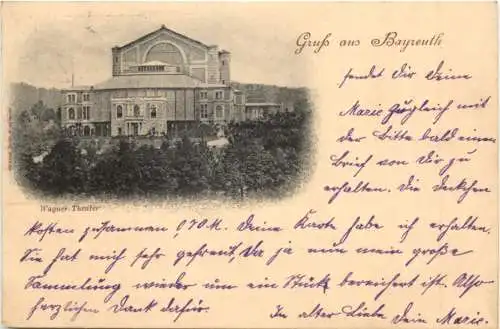 Gruß aus Bayreuth
sendet Dir Deine
Marie zugleich mit
der Bitte bald einen
Brief von Dir zu
erhalten. Die Deckchen
Wagner-Theater
kosten zusammen 0.70 M. Deine Karte habe ich erhalten.
Sie hat mich sehr gefreut, da ja nun mein große
Sammlung wieder um ein Stück bereichert ist. Also
herzlichen Dank dafür.
In alter Liebe Dein Marie.